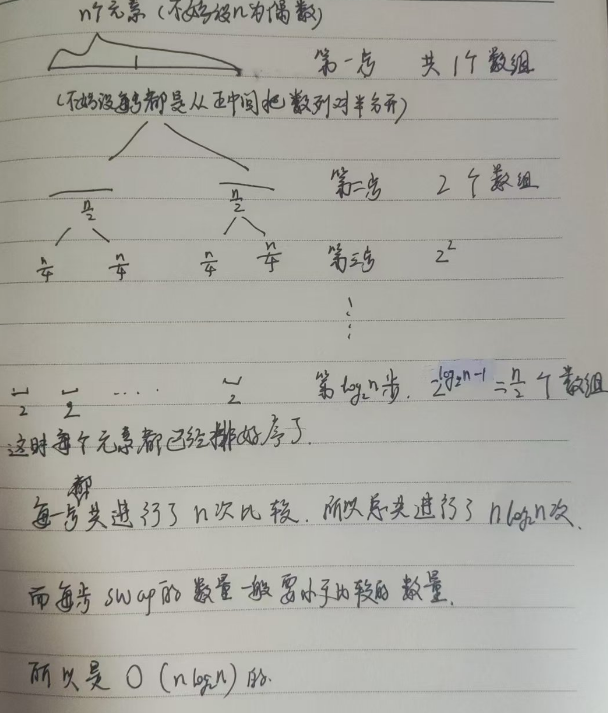 n个元素(不妨设n为偶数)
第一步 共1个数组
(不妨设每步都是从正中间把数列对半分开)
n/2 n/2 第二步 2个数组
n/4 n/4 n/4 n/4 第三步 2^2
⋮
2 2 .... 2 第log₂n步. 2^{log₂n-1} = n/2 个数组
这时每个元素都已经排好序了.
每一步都共进行了n次比较. 所以总共进行了 n log₂n次.
而每步swap的数量一般要小于比较的数量.
所以是 O(n log₂n) 的.